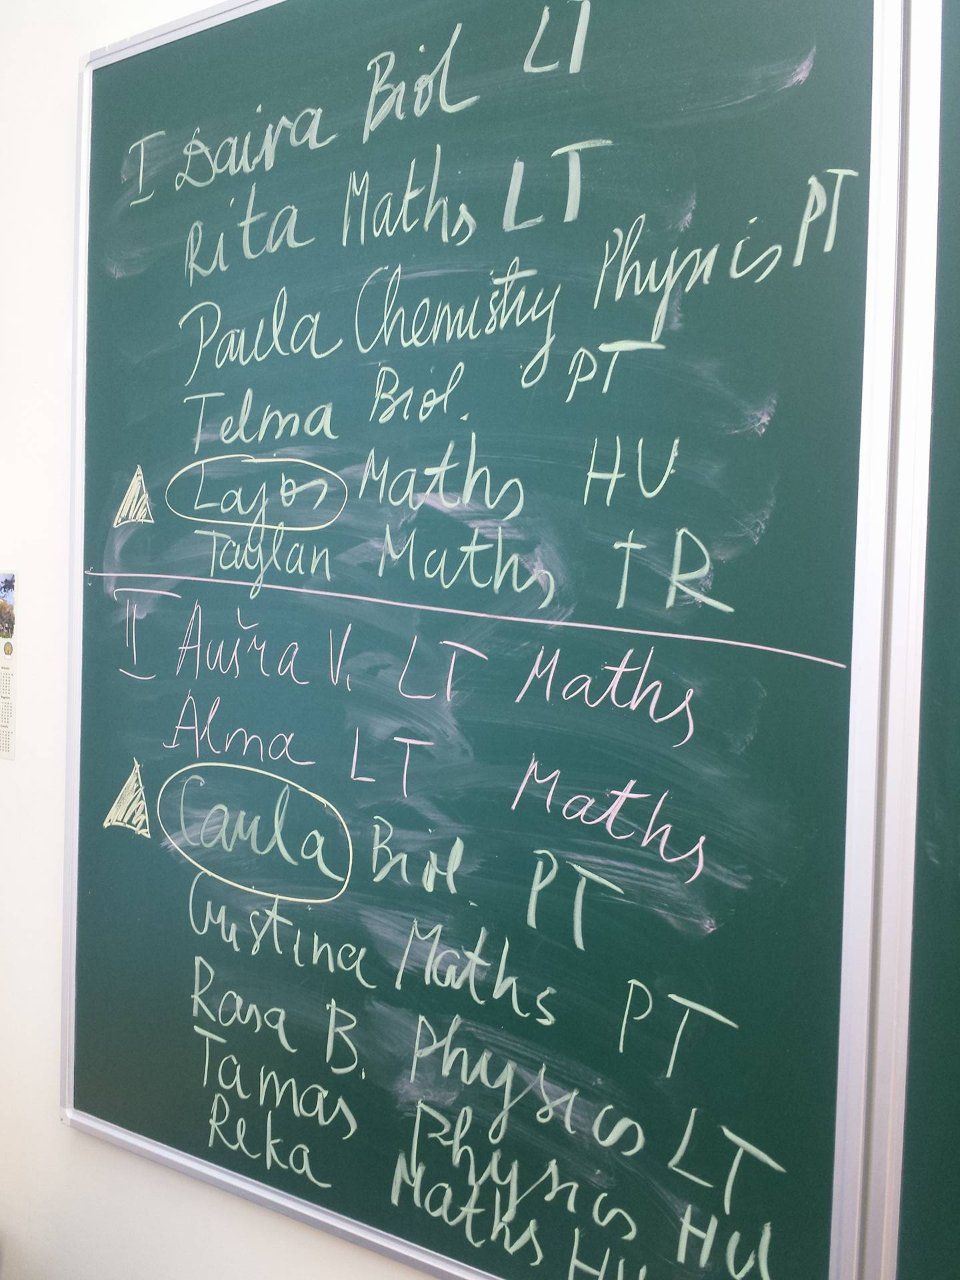 I Daiva Biol LT
Rita Maths LT
Paula Chemistry Physics PT
Telma Biol. PT
Lajos Maths HU
Taylan Maths TR
II Aušra V. LT Maths
Alma LT Maths
Carla Biol. PT
Cristina Maths PT
Rasa B. Physics LT
Tamas Physics HU
Reka Maths HU